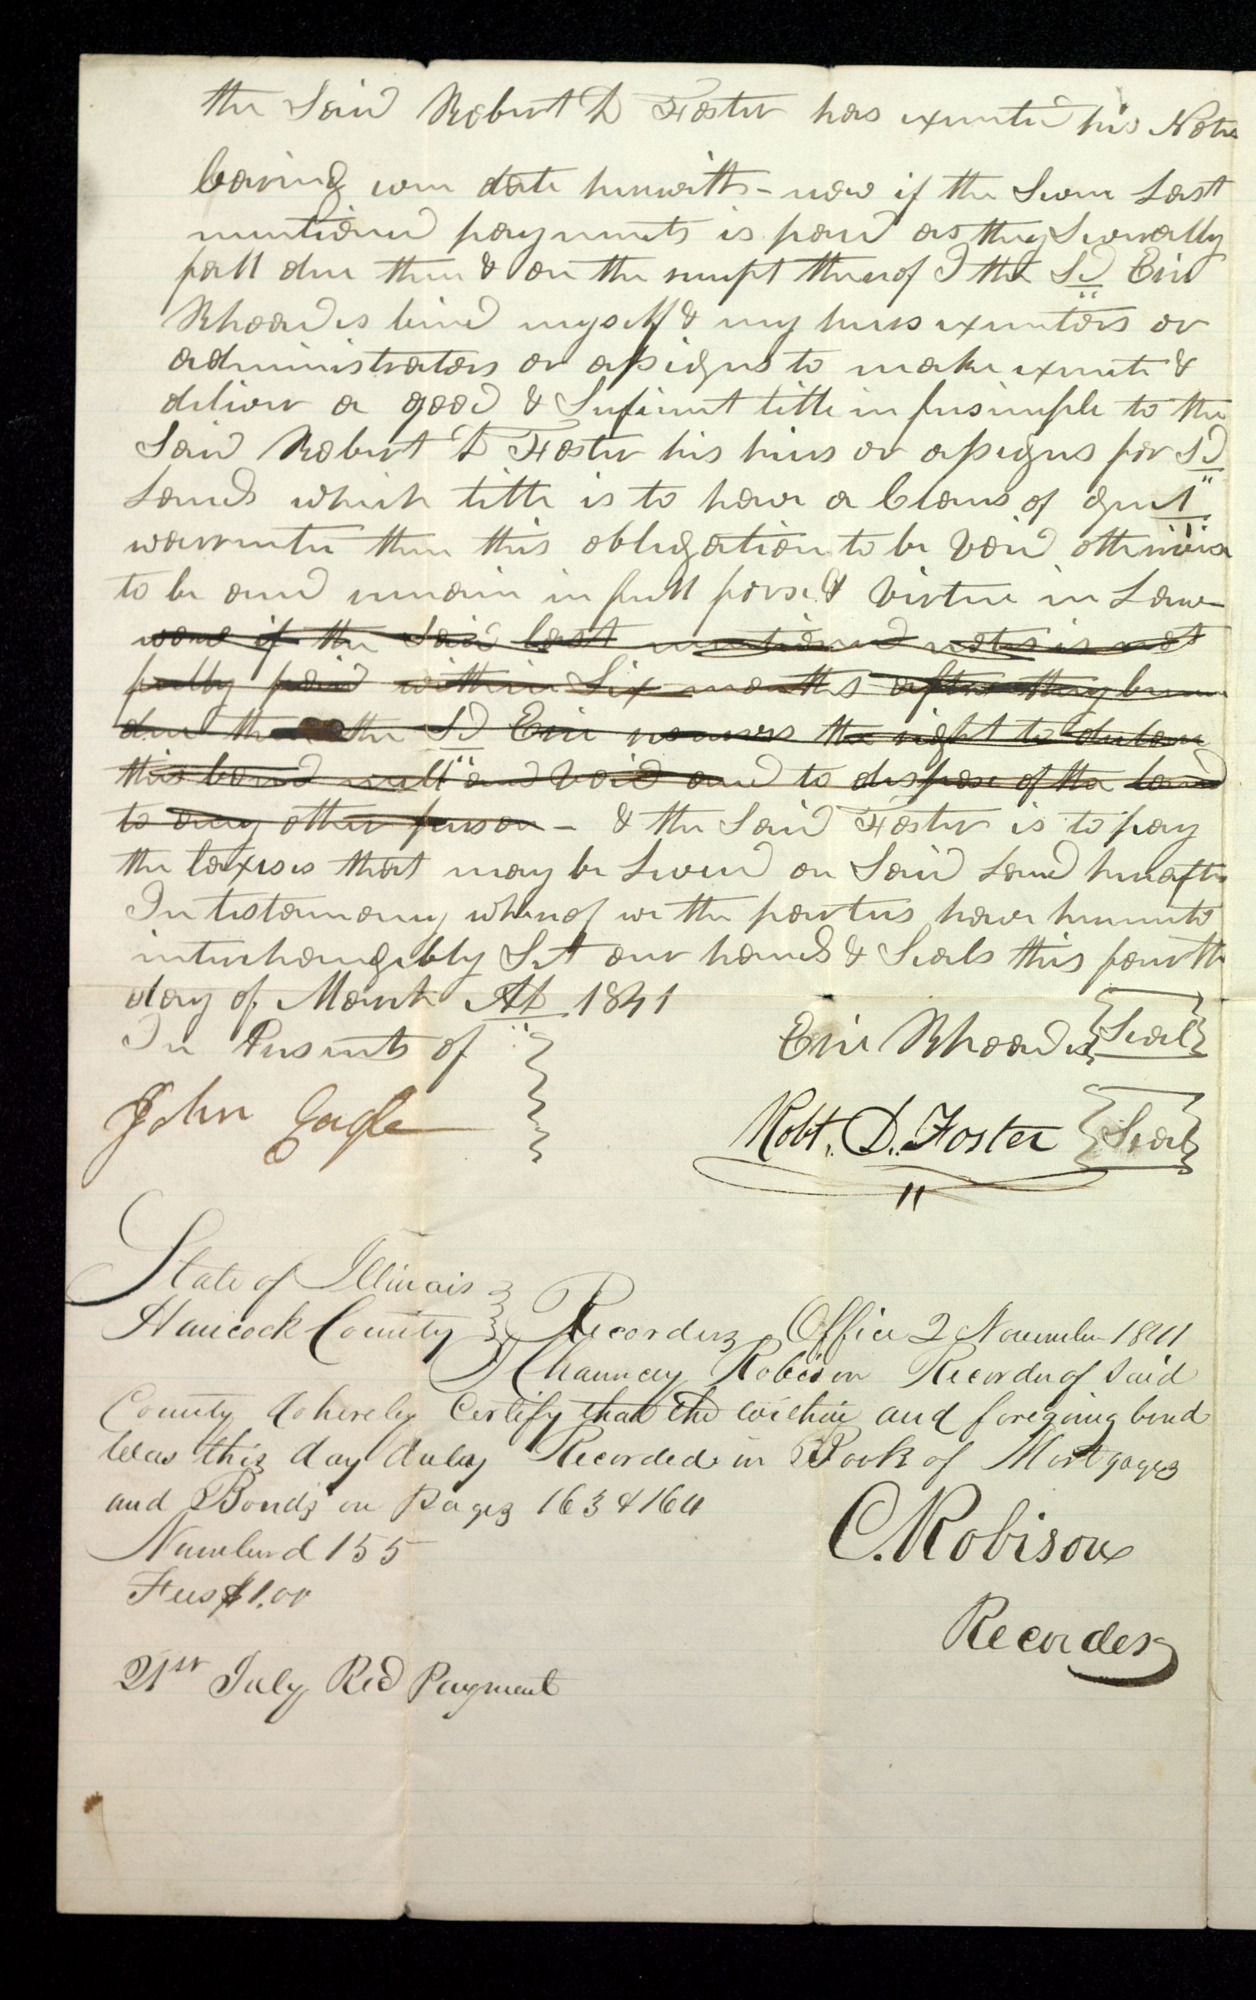 the Said Robert D Foster has executed his Notes
bearing even date herewith - now if the Seven Last
mentioned payments is paid as they Severally
fall due then & on the receipt thereof I the Sd Eric
Rhoades bind myself & my heirs executors or
administrators or assigns to make execute &
deliver a good & Suficient title in feesimple to the
Said Robert D Foster his heirs or assigns for Sd
Lands which title is to have a Claus of genl
warrentee then this obligation to be Void otherwise
to be and remain in full forse & Virtue in Law
and if the Said last mentioned notes is not
fully paid within Six months after they become
due then the Sd Eric reserves the right to declare
this bond null and Void and to dispose of the land
to any other person - & the Said Foster is to pay
the taxeses that may be Levied on Said Land hereafter
In testamony whereof we the parties have hereunto
interchangebly Set our hands & Seals this fourth
day of March AD 1841
In Presents of
Eric Rhoades Seal
John Eagle
Robt. D. Foster Seal
State of Illinois
Hancock County Recorders Office 2 November 1841
I Chauncey Robison Recorder of Said
County do hereby Certify that the within and foregoing bond
Was this day duly Recorded in Book of Mortgages
and Bonds on Pages 163 & 164
Numberd 155
C. Robison
Fees $1.00
Recorder
21st July Red Payment